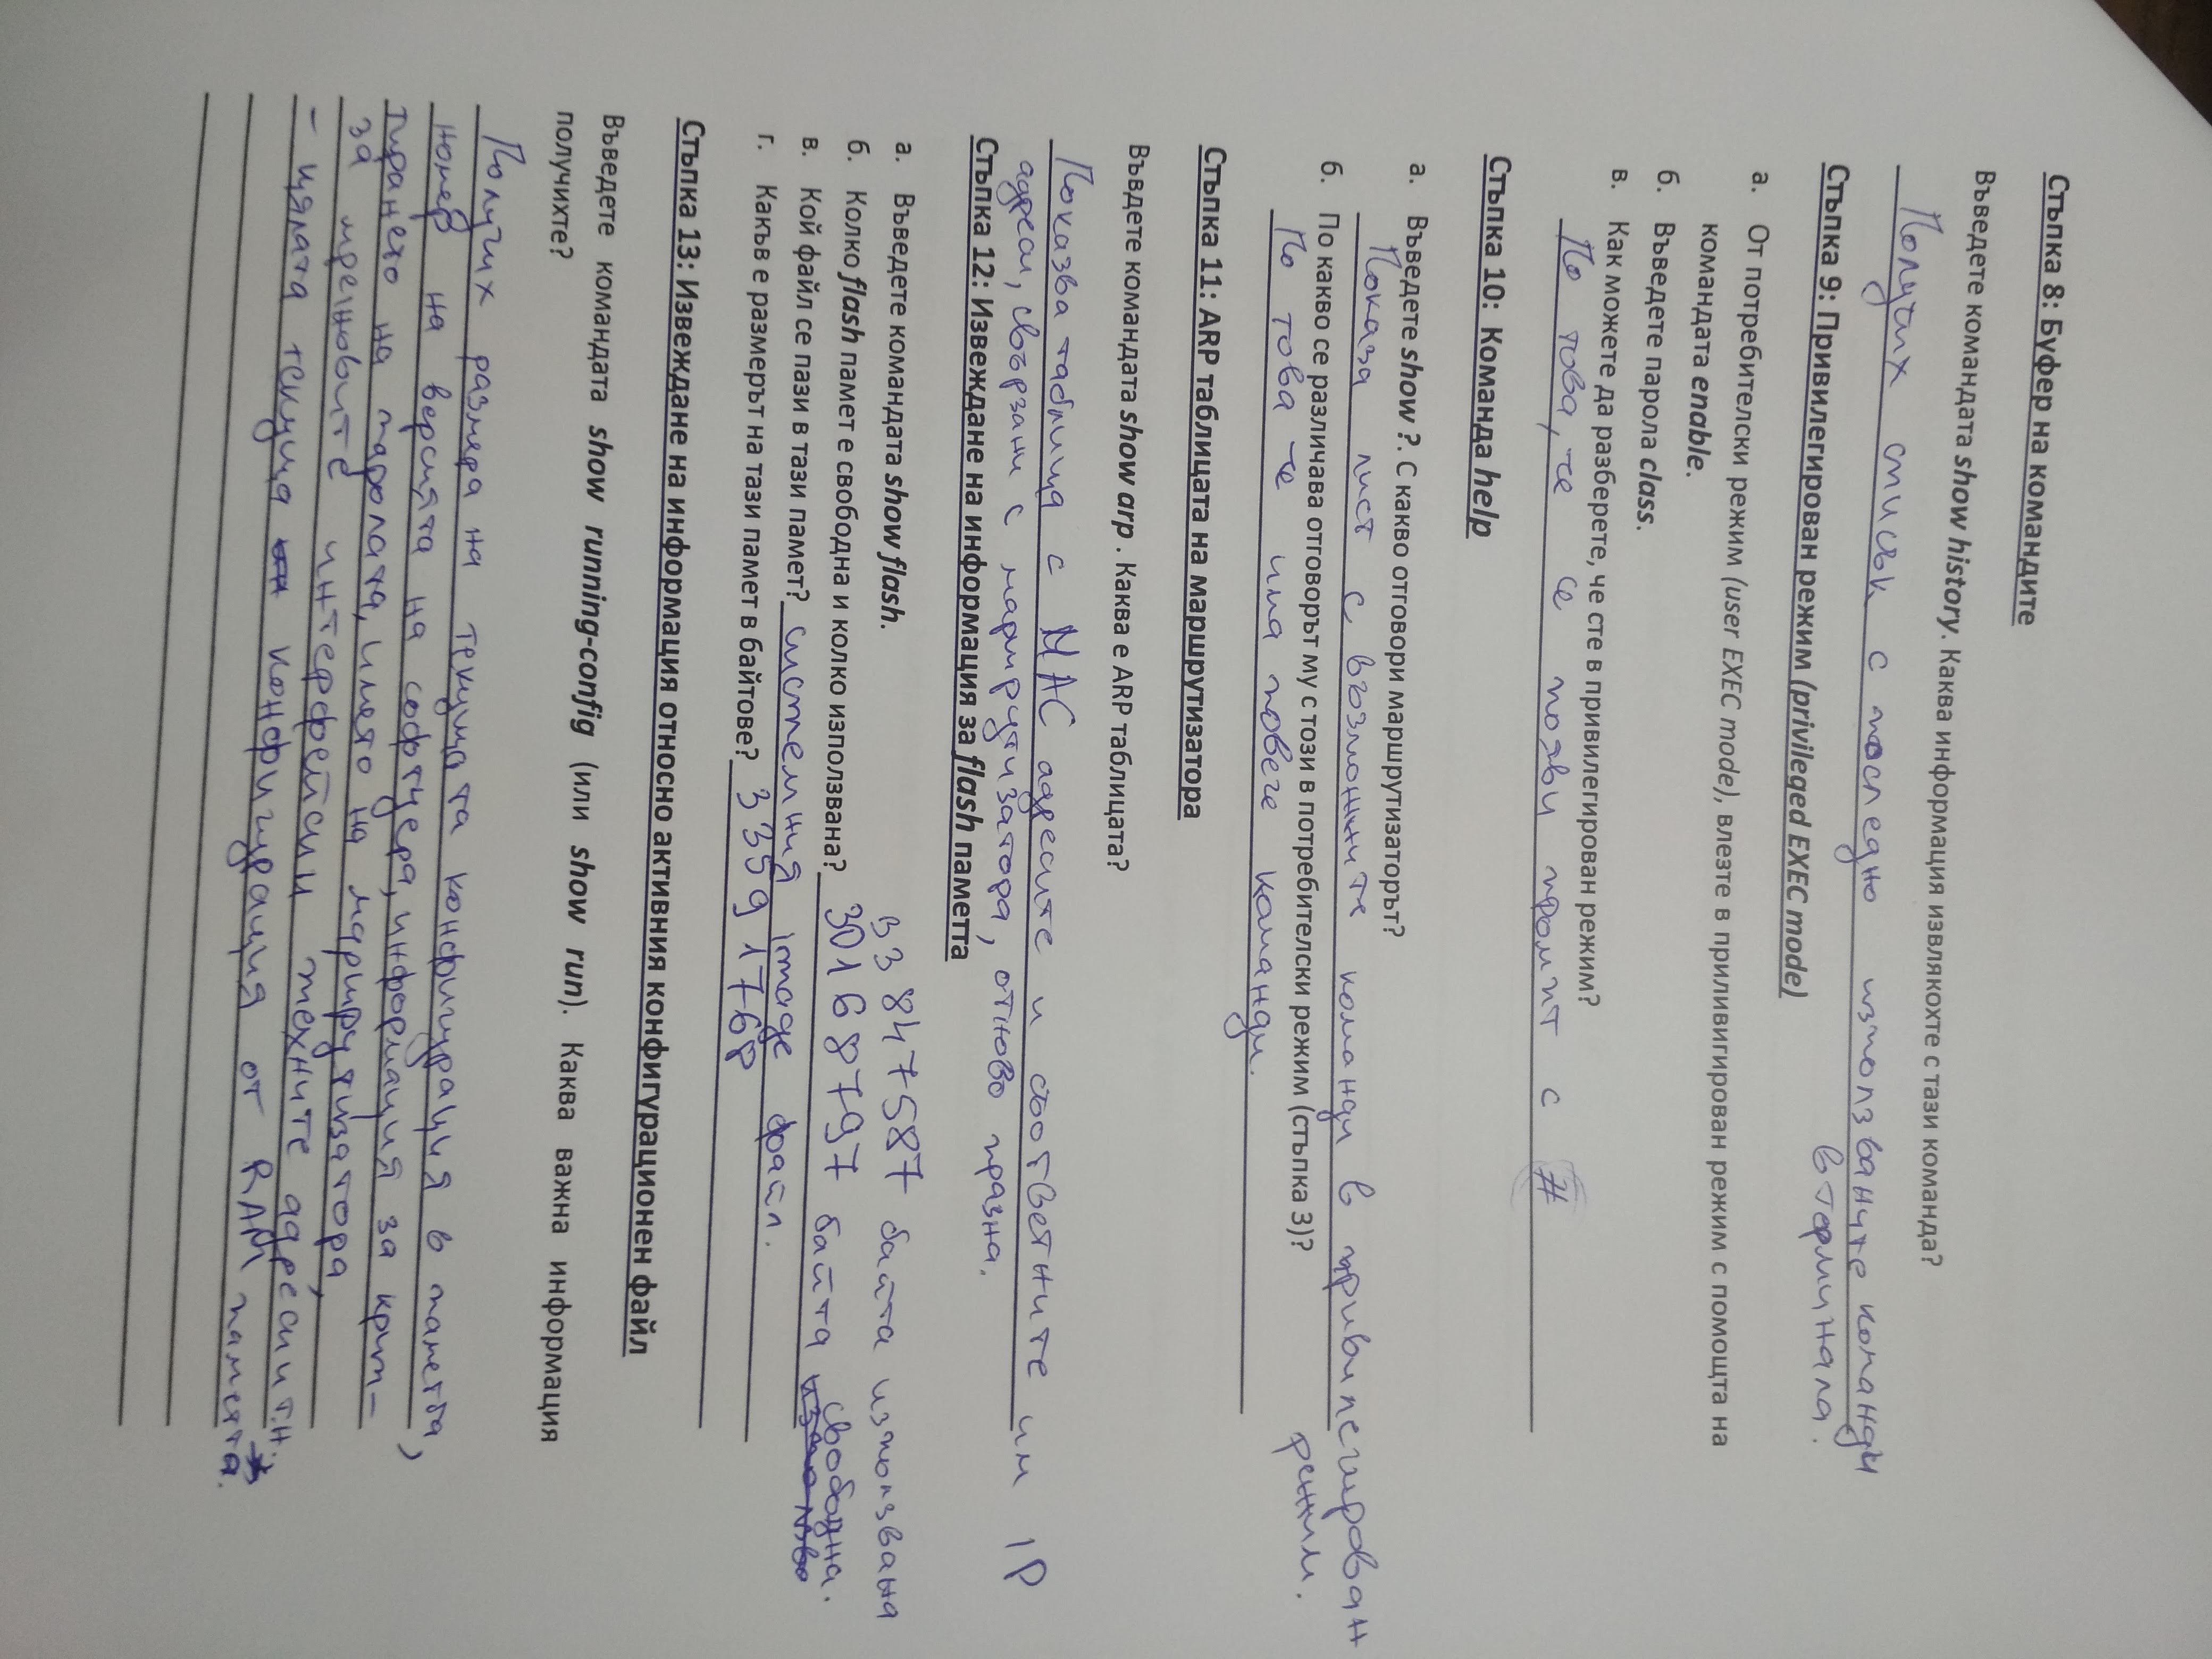 Стъпка 8: Буфер на командите
Въведете командата show history. Каква информация извлякохте с тази команда?
Получих списък с последно използваните команди
в терминала.
Стъпка 9: Привилегирован режим (privileged EXEC mode)
а. От потребителски режим (user EXEC mode), влезте в приливигирован режим с помощта на
командата enable.
б. Въведете парола class.
в. Как можете да разберете, че сте в привилегирован режим?
По това, че се появи промпт с #
Стъпка 10: Команда help
а. Въведете show ?. С какво отговори маршрутизаторът?
Показа лист с възможните команди в привилегирован
режим.
б. По какво се различава отговорът му с този в потребителски режим (стъпка 3)?
По това че има повече команди.
Стъпка 11: ARP таблицата на маршрутизатора
Въвдете командата show arp . Каква е ARP таблицата?
Показва таблица с MAC адресите и соответните им IP
адреси, свързани с маршрутизатора, отново празна.
Стъпка 12: Извеждане на информация за flash паметта
а. Въведете командата show flash.
33847587 байта използвана
б. Колко flash памет е свободна и колко използвана? 30168797 байта свободна.
в. Кой файл се пази в тази памет? системния image файл.
г. Какъв е размерът на тази памет в байтове? 33591768
Стъпка 13: Извеждане на информация относно активния конфигурационен файл
Въведете командата show running-config (или show run). Каква важна информация
получихте?
Получих размера на текущата конфигурация в паметта,
номер на версията на софтуера, информация за крип-
тирането на паролата, името на маршрутизатора,
за мрежовите интерфейси и техните адреси и т.н.
- цялата текуща конфигурация от RAM паметта.